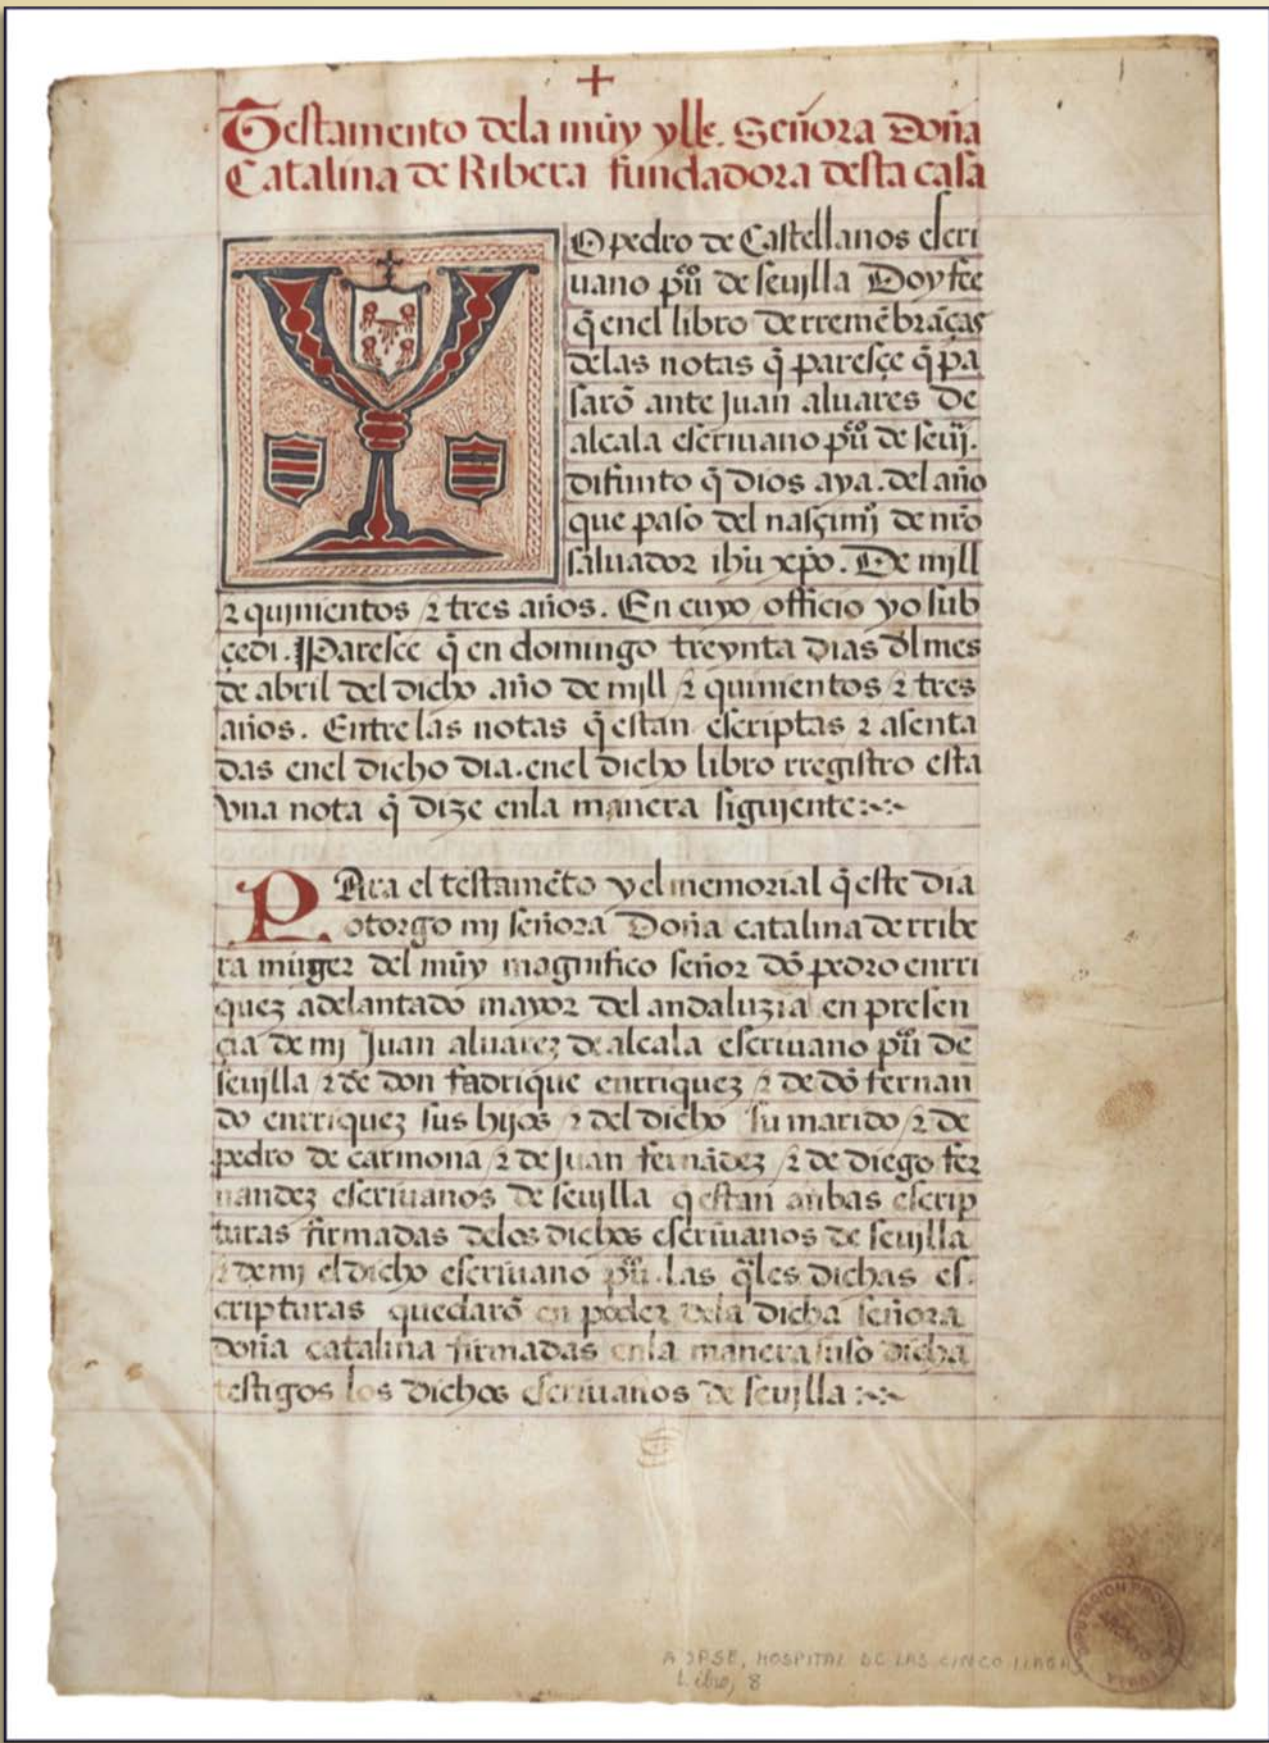 +
Testamento dela muy ylle. Señora Doña
Catalina de Ribera fundadora desta casa
YO pedro de Castellanos escri
uano puco de seuilla Doy fee
q̄ enel libro de rremēbrāças
delas notas q̄ paresçe q̄ pa
sarō ante Juan aluares de
alcala escriuano puco de seuj.
difunto q̄ dios aya. del año
que paso del nasçimj de nro
saluador ihu xpo. De mjll
⁊ qujnientos ⁊ tres años. En cuyo officio yo sub
çedi. Paresce q̄ en domingo treynta dias dl mes
de abril del dicho año de mjll ⁊ quinientos ⁊ tres
años. Entre las notas q̄ estan escriptas ⁊ asenta
das enel dicho dia. enel dicho libro rregistro esta
vna nota q̄ dize enla manera sigujente:~
PAra el testamēto y el memorial q̄ este dia
otorgo mj señora Doña catalina de rribe
ra muger del muy magnifico señor dō pedro enrri
quez adelantado mayor del andaluzia en presen
çia de mj Juan aluarez de alcala escriuano puco de
seujlla ⁊ de don fadrique enrriquez ⁊ de dō fernan
do enrriquez sus hijos ⁊ del dicho su marido ⁊ de
pedro de carmona ⁊ de Juan fernādez ⁊ de diego fer
nandez escriuanos de seuilla q estan anbas escrip
turas firmadas delos dichos escriuanos de seuilla
⁊ de mj el dicho escriuano puco. las q̄les dichas es.
cripturas quedarō en poder dela dicha señora
doña catalina firmadas enla manera suso dicha
testigos los dichos escriuanos de seujlla:~
A DPSE, HOSPITAL DE LAS CINCO LLAGAS
Libro, 8
DIPUTACION PROVINCIAL